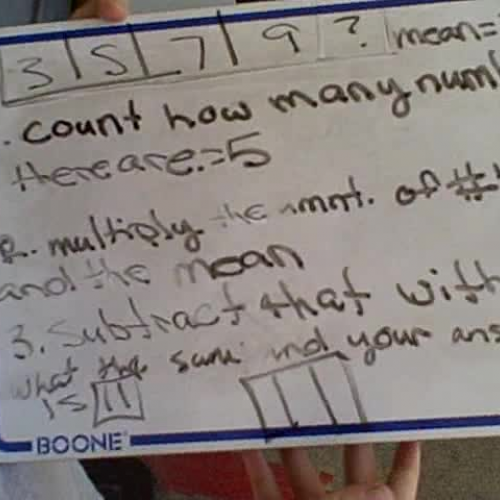 3 5 7 9 ? mean=
1. count how many num
there are.=5
2. multiply the amnt. of #
and the mean
3. Subtract that with
what the sum and your ans
is 11
11
BOONE